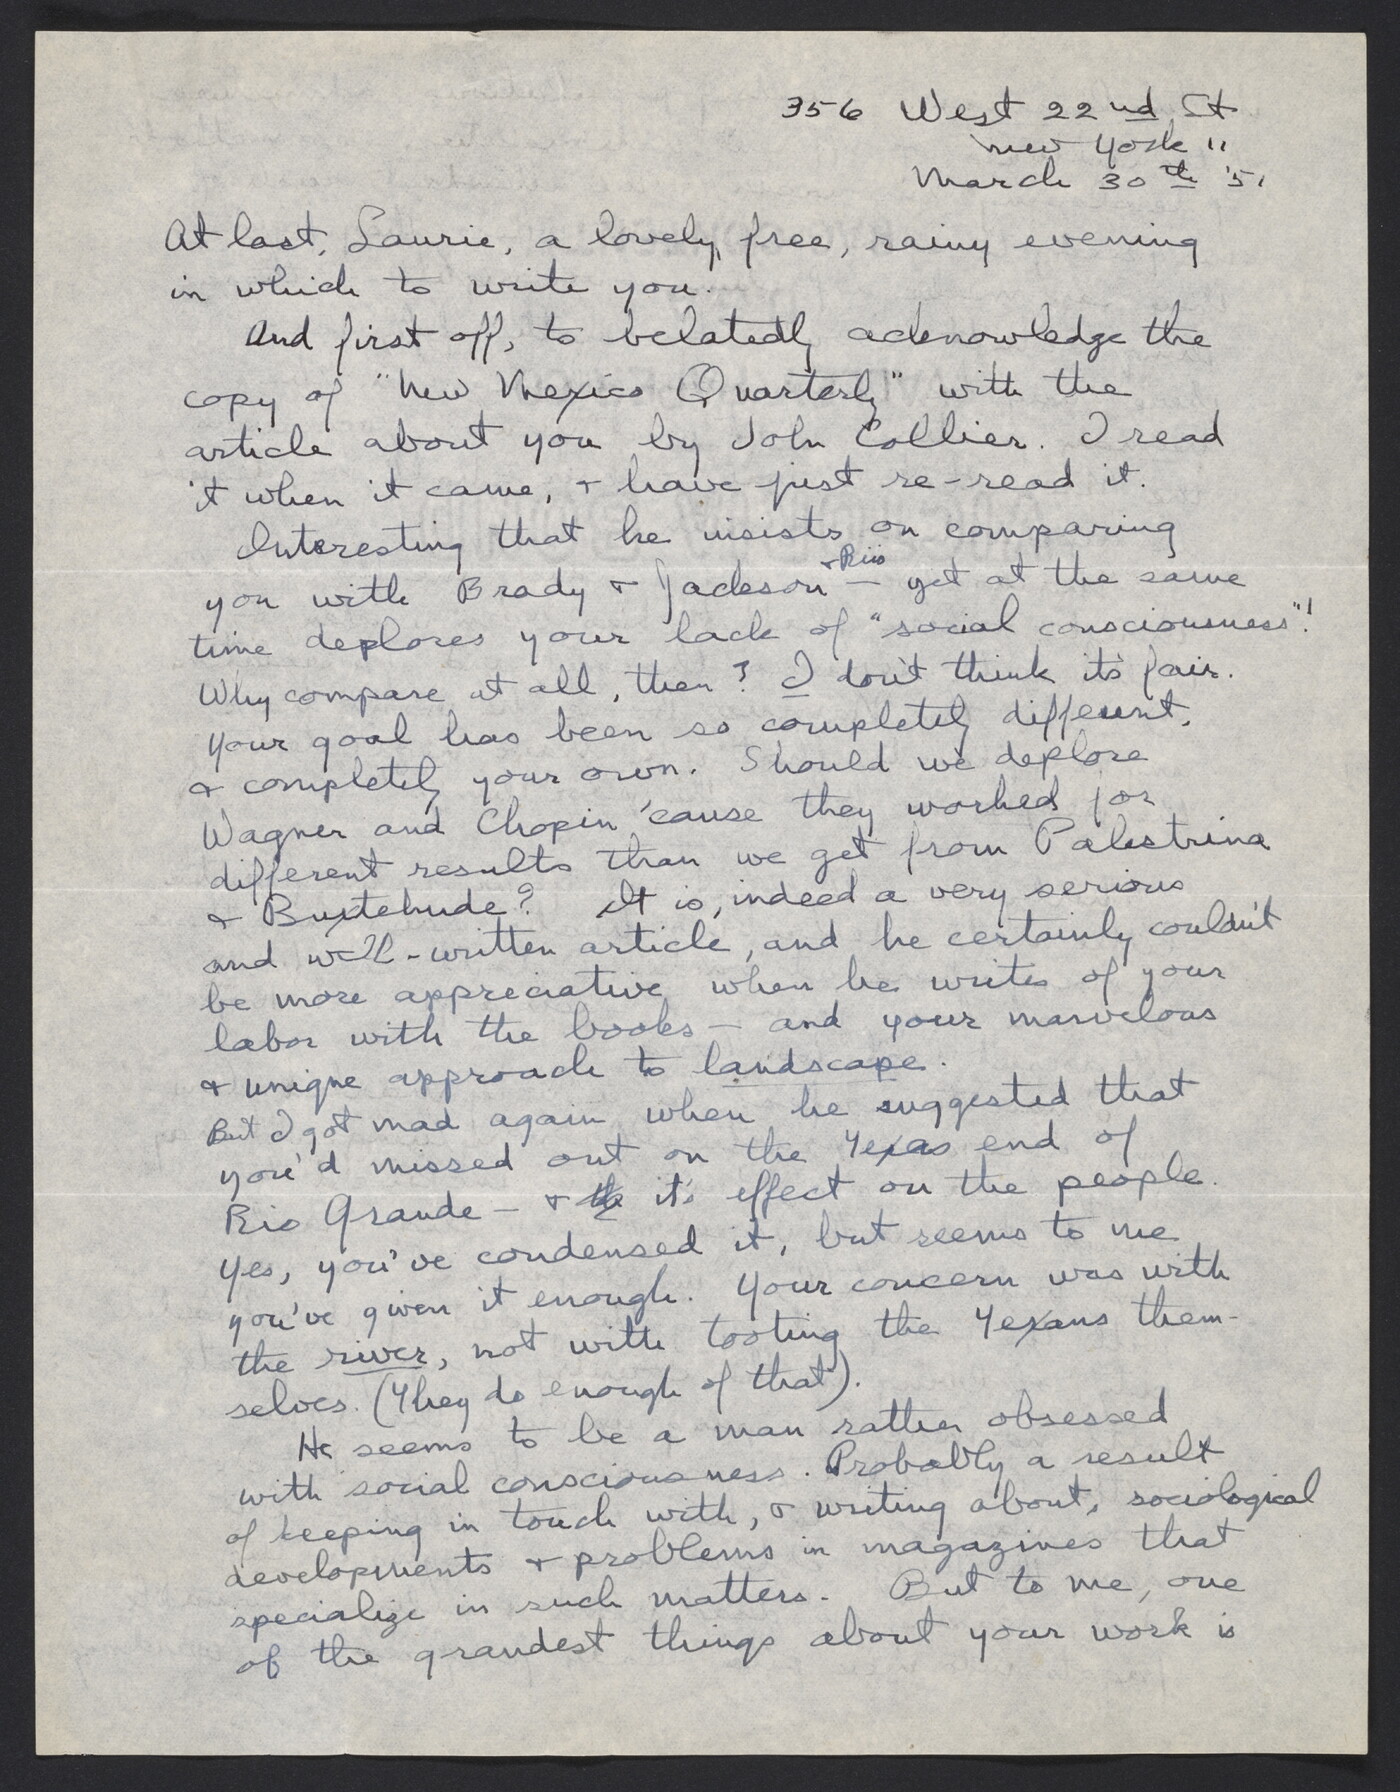 356 West 22nd St
New York 11
March 30th '51
At last, Laurie, a lovely, free, rainy evening
in which to write you.
And first off, to belatedly acknowledge the
copy of "New Mexico Quarterly" with the
article about you by John Collier. I read
it when it came, & have just re-read it.
Interesting that he insists on comparing
you with Brady & Jackson & Riis — yet at the same
time deplores your lack of "social consciousness"!
Why compare at all, then? I don't think its fair.
Your goal has been so completely different,
& completely your own. Should we deplore
Wagner and Chopin 'cause they worked for
different results than we get from Palestrina
& Buxtehude? It is, indeed a very serious
and well-written article, and he certainly couldn't
be more appreciative when he writes of your
labor with the books — and your marvelous
& unique approach to landscape.
But I got mad again when he suggested that
you'd missed out on the Texas end of
Rio Grande — & it's effect on the people.
Yes, you've condensed it, but seems to me
you've given it enough. Your concern was with
the river, not with tooting the Texans them-
selves. (They do enough of that).
He seems to be a man rather obsessed
with social consciousness. Probably a result
of keeping in touch with, & writing about, sociological
developments & problems in magazines that
specialize in such matters. But to me, one
of the grandest things about your work is